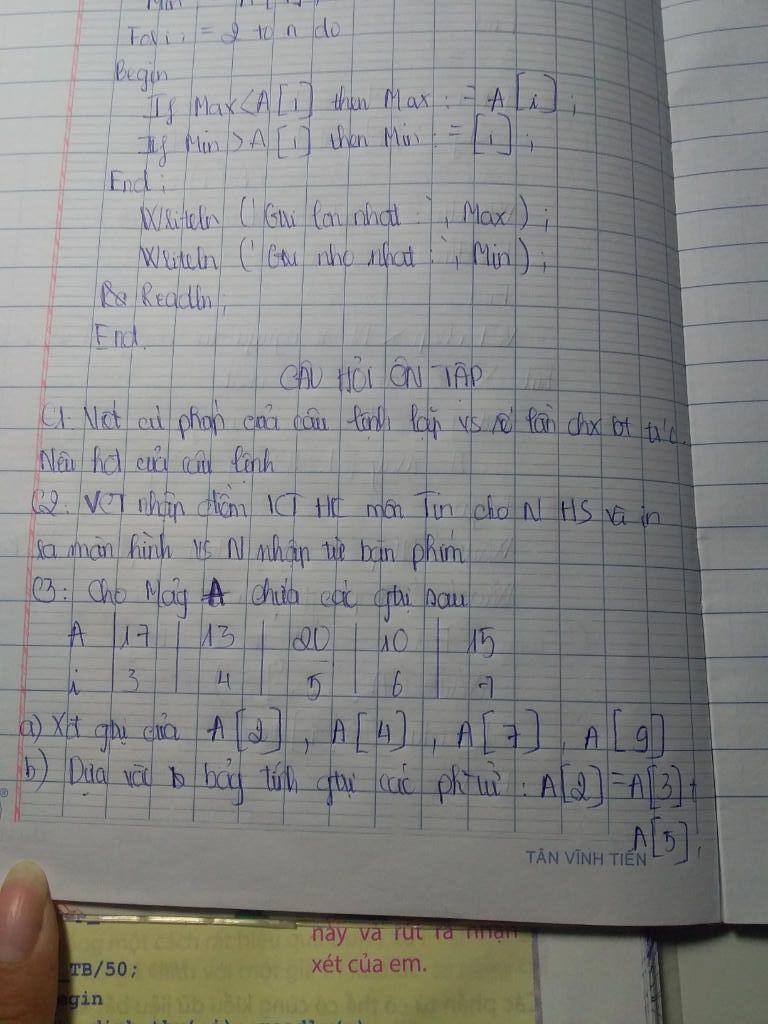 For i := 2 to n do
Begin
If Max < A[i] then Max := A[i];
If Min > A[i] then Min := [i];
End;
Writeln ('Gtri lon nhat :', Max);
Writeln ('Gtri nho nhat :', Min);
Readln;
End.
CÂU HỎI ÔN TẬP
C1. Viết cú pháp của câu lệnh lặp vs số lần chx bt tr'c.
Nêu hđ của câu lệnh
C2. VCT nhập điểm KT HK môn Tin cho N HS và in
ra màn hình vs N nhập từ bàn phím
C3: Cho Mảg A chứa các gtrị sau
A | 17 | 13 | 20 | 10 | 15
i | 3 | 4 | 5 | 6 | 7
a) Xđ gtrị của A[2], A[4], A[7], A[9]
b) Dựa vào bảg tính gtrị các ph tử : A[2] = A[3] +
A[5],
TÂN VĨNH TIẾN
này và rút ra nhận
xét của em.
TB/50;
egin